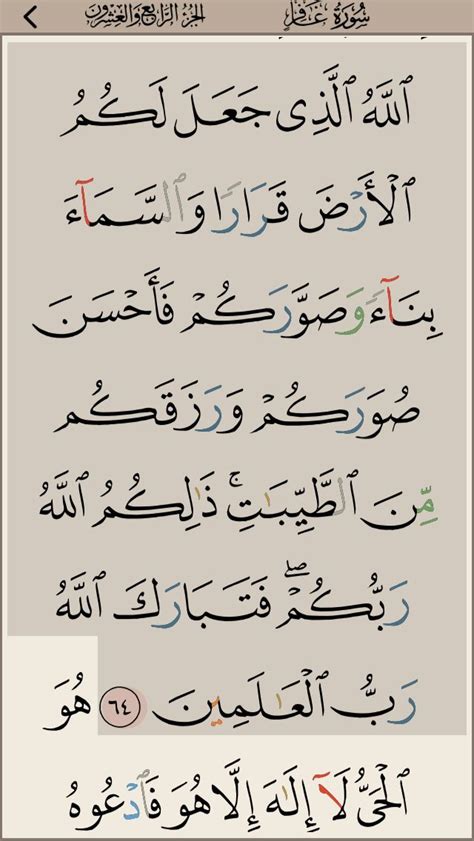 سُورَةُ غَافِرٍ الجُزْءُ الرَّابِعُ وَالعِشْرُونَ
ٱللَّهُ ٱلَّذِى جَعَلَ لَكُمُ
ٱلْأَرْضَ قَرَارًا وَٱلسَّمَآءَ
بِنَآءً وَصَوَّرَكُمْ فَأَحْسَنَ
صُوَرَكُمْ وَرَزَقَكُم
مِّنَ ٱلطَّيِّبَٰتِ ۚ ذَٰلِكُمُ ٱللَّهُ
رَبُّكُمْ ۖ فَتَبَارَكَ ٱللَّهُ
رَبُّ ٱلْعَٰلَمِينَ ٦٤ هُوَ
ٱلْحَىُّ لَآ إِلَٰهَ إِلَّا هُوَ فَٱدْعُوهُ